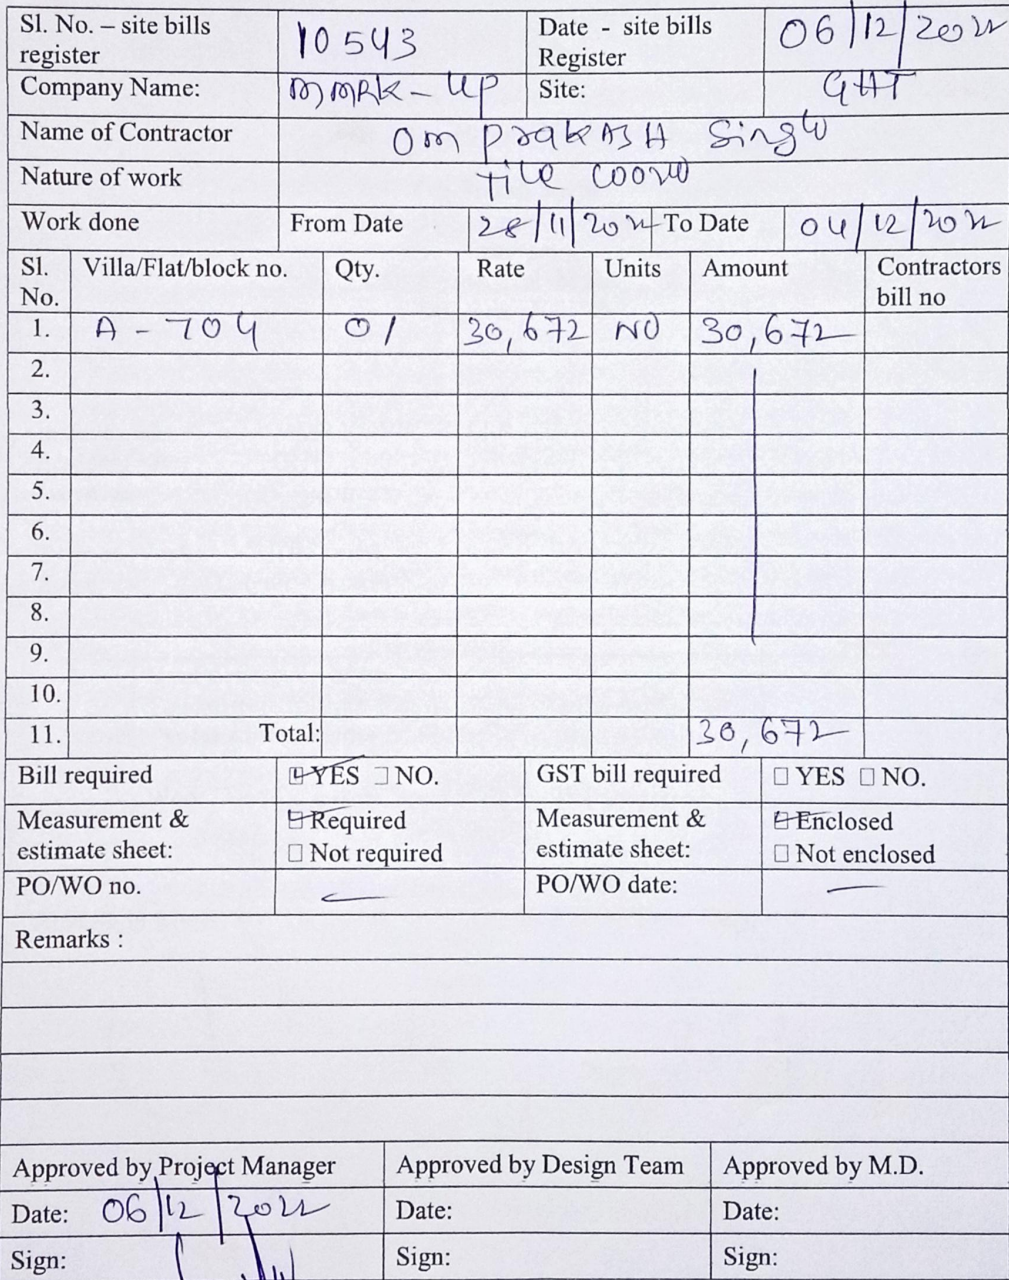 Sl. No. – site bills register 10543 Date - site bills Register 06/12/2022
Company Name: MMRK-UP Site: GHT
Name of Contractor Om prakASH Singh
Nature of work tile
Work done From Date 28/11/2022 To Date 04/12/2022
Sl. No. Villa/Flat/block no. Qty. Rate Units Amount Contractors bill no
1. A 704 01 30,672 NO 30,672
2.
3.
4.
5.
6.
7.
8.
9.
10.
11. Total: 30,672
Bill required ☑ YES ☐ NO. GST bill required ☐ YES ☐ NO.
Measurement & estimate sheet: ☑ Required ☐ Not required Measurement & estimate sheet: ☑ Enclosed ☐ Not enclosed
PO/WO no. — PO/WO date: —
Remarks :
Approved by Project Manager Approved by Design Team Approved by M.D.
Date: 06/12/2022 Date: Date:
Sign: Sign: Sign: